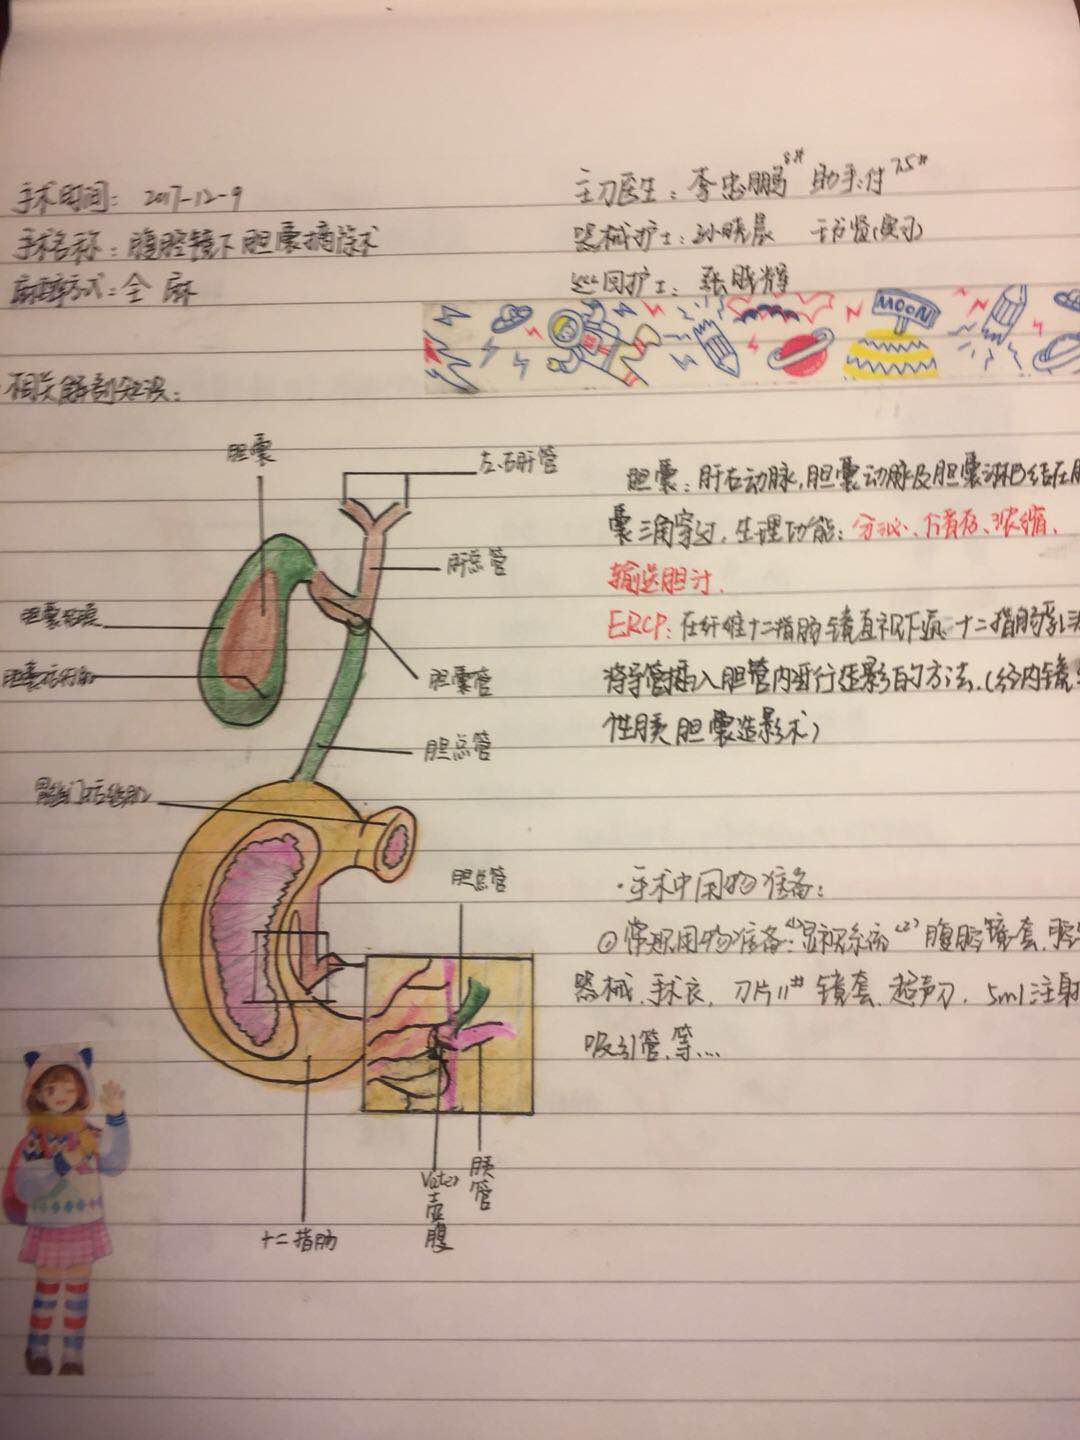 手术时间：2017-12-9
手术名称：腹腔镜下胆囊摘除术
麻醉方式：全麻
主刀医生：李忠鹏8# 助手：付7.5#
器械护士：孙晓晨 于书贤(实习)
巡回护士：张晓辉
MOON
相关解剖知识：
胆囊
左.右肝管
肝总管
胆囊粘膜
胆囊管
胆总管
胆总管
Vater壶腹
胰管
十二指肠
胆囊：肝右动脉，胆囊动脉及胆囊淋巴结在胆
囊三角穿过．生理功能：分泌、贮存、浓缩、
输送胆汁．
ERCP：在纤维十二指肠镜直视下通过十二指肠乳头
将导管插入胆管内进行造影的方法．(经内镜
性胰胆囊造影术)
·手术中用物准备：
①常规用物准备：<1>显视系统<2>腹腔镜套．腔
器械．手术衣．刀片11#镜套．超声刀．5ml注射
吸引管．等...